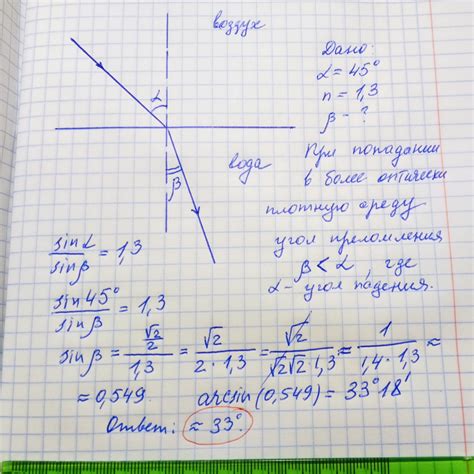 воздух
Дано:
α = 45°
n = 1,3
β - ?
α
вода
β
При попадании
в более оптически
плотную среду
угол преломления
β < α, где
α - угол падения.
sinα/sinβ = 1,3
sin45°/sinβ = 1,3
sinβ = (√2/2)/1,3 = √2/(2·1,3) = √2/(√2√2·1,3) ≈ 1/(1,4·1,3) ≈
≈ 0,549. arcsin(0,549) = 33°18'
Ответ: ≈ 33°.